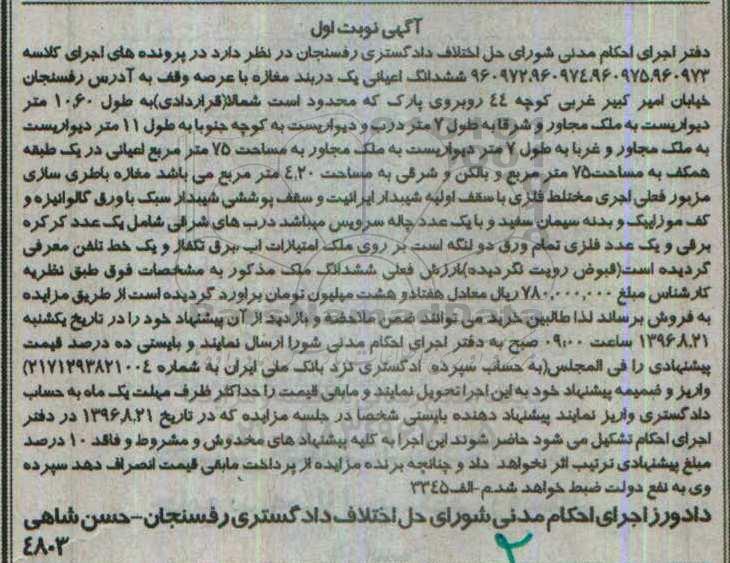 آگهی نوبت اول
دفتر اجرای احکام مدنی شورای حل اختلاف دادگستری رفسنجان در نظر دارد در پرونده های اجرای کلاسه
۹۶۰۹۷۲،۹۶۰۹۷۴،۹۶۰۹۷۵،۹۶۰۹۷۳ ششدانگ اعیانی یک دربند مغازه با عرصه وقف به آدرس رفسنجان
خیابان امیر کبیر غربی کوچه ٤٤ روبروی پارک که محدود است شمالا(قراردادی)به طول ۱۰.۶۰ متر
دیواریست به ملک مجاور و شرقا به طول ۷ متر درب و دیواریست به کوچه جنوبا به طول ۱۱ متر دیواریست
به ملک مجاور و غربا به طول ۷ متر دیواریست به ملک مجاور به مساحت ۷۵ متر مربع اعیانی در یک طبقه
همکف به مساحت۷۵ متر مربع و بالکن و شرقی به مساحت ٤.۲۰ متر مربع می باشد مغازه باطری سازی
مزبور فعلی اجری مختلط فلزی با سقف اولیه شیبدار ایرانیت و سقف پوششی شیبدار سبک با ورق گالوانیزه و
کف موزاییک و بدنه سیمان سفید و با یک عدد چاله سرویس میباشد درب های شرقی شامل یک عدد کرکره
برقی و یک عدد فلزی تمام ورق دو لنگه است بر روی ملک امتیازات اب،برق تکفاز و یک خط تلفن معرفی
گردیده است(قبوض رویت نگردیده)ارزش فعلی ششدانگ ملک مذکور به مشخصات فوق طبق نظریه
کارشناس مبلغ ۷۸۰,۰۰۰,۰۰۰ ریال معادل هفتاد و هشت میلیون تومان براورد گردیده است از طریق مزایده
به فروش برساند لذا طالبین خرید می توانند ضمن ملاحضه و بازدید از آن پیشنهاد خود را در تاریخ یکشنبه
۱۳۹۶.۸.۲۱ ساعت ۰۹:۰۰ صبح به دفتر اجرای احکام مدنی شورا ارسال نمایند و بایستی ده درصد قیمت
پیشنهادی را فی المجلس(به حساب سپرده ادگستری نزد بانک ملی ایران به شماره ۲۱۷۱۲۹۳۸۲۱۰۰٤)
واریز و ضمیمه پیشنهاد خود به این اجرا تحویل نمایند و مابقی قیمت را حداکثر ظرف مهلت یک ماه به حساب
دادگستری واریز نمایند پیشنهاد دهنده بایستی شخصا در جلسه مزایده که در تاریخ ۱۳۹۶.۸.۲۱ در دفتر
اجرای احکام تشکیل می شود حاضر شوند این اجرا به کلیه پیشنهاد های مخدوش و مشروط و فاقد ۱۰ درصد
مبلغ پیشنهادی ترتیب اثر نخواهد داد و چنانچه برنده مزایده از پرداخت مابقی قیمت انصراف دهد سپرده
وی به نفع دولت ضبط خواهد شد.م-الف۳۳٤۵
دادورز اجرای احکام مدنی شورای حل اختلاف دادگستری رفسنجان-حسن شاهی
٤۸۰۳
۲